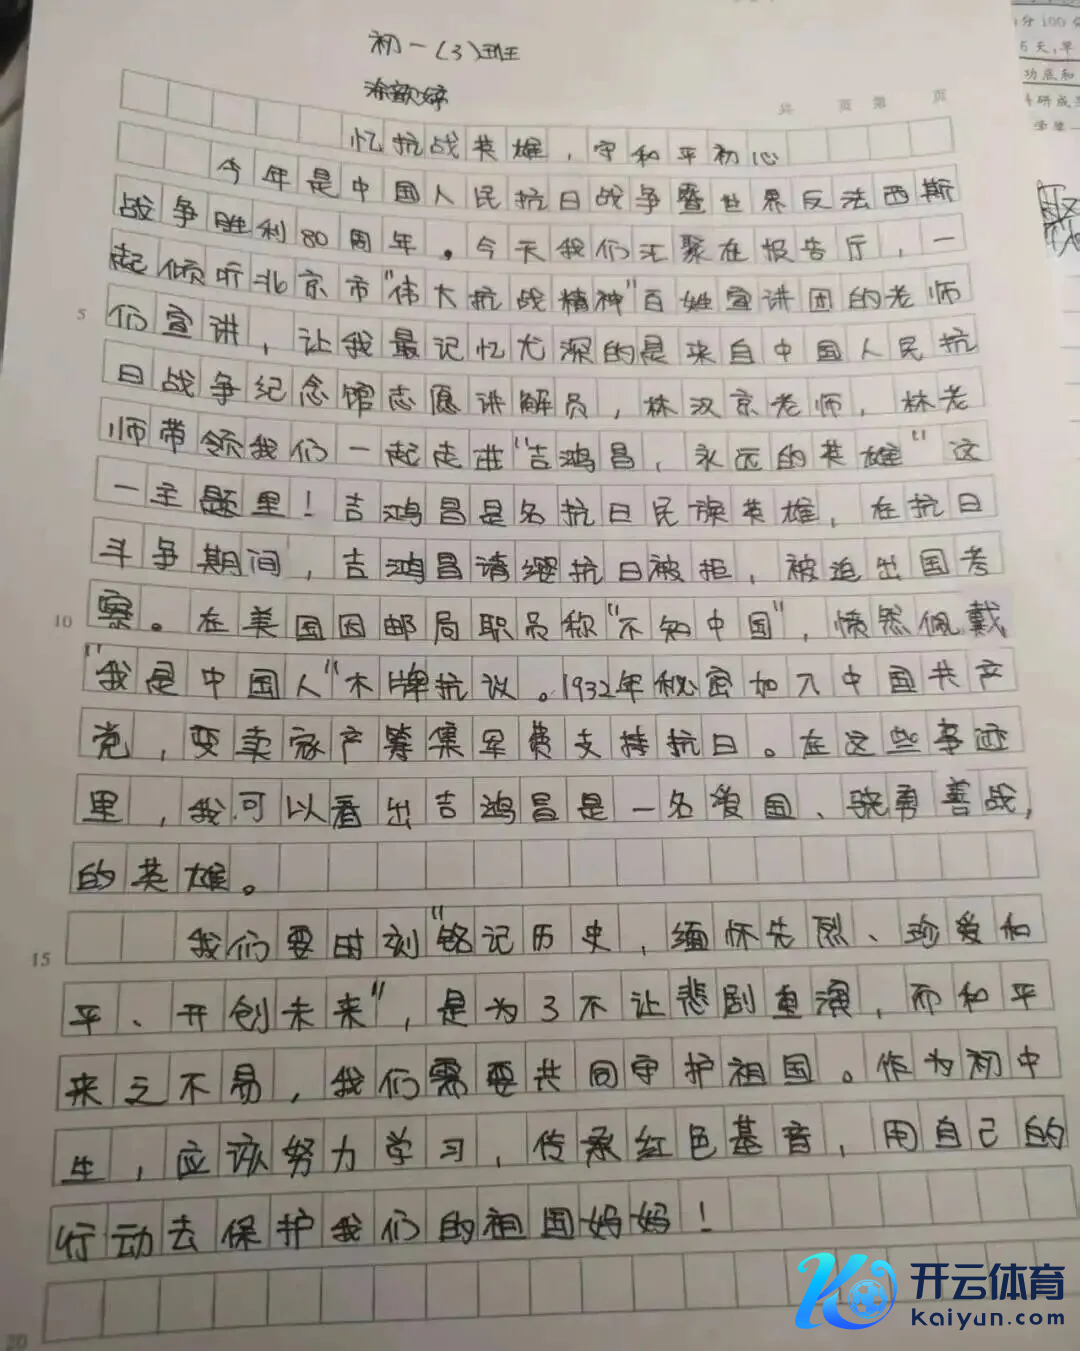 初一(3)班
涂歆婷
共 页 第 页
忆抗战英雄，守和平初心
今年是中国人民抗日战争暨世界反法西斯
战争胜利80周年。今天我们汇聚在报告厅，一
起倾听北京市"伟大抗战精神"百姓宣讲团的老师
5 们宣讲，让我最记忆尤深的是来自中国人民抗
日战争纪念馆志愿讲解员，林汉京老师，林老
师带领我们一起走进"吉鸿昌，永远的英雄"这
一主题里！吉鸿昌是名抗日民族英雄，在抗日
斗争期间，吉鸿昌请缨抗日被拒，被迫出国考
10 察。在美国因邮局职员称"不知中国"，愤然佩戴
"我是中国人"木牌抗议。1932年秘密加入中国共产
党，变卖家产筹集军费支持抗日。在这些事迹
里，我可以看出吉鸿昌是一名爱国、骁勇善战，
的英雄。
15 我们要时刻"铭记历史，缅怀先烈、珍爱和
平、开创未来"，是为了不让悲剧重演，而和平
来之不易，我们需要共同守护祖国。作为初中
生，应该努力学习，传承红色基音，用自己的
行动去保护我们的祖国妈妈！
20
分100
5天,早
功底和
研成
学生
开云体育
kaiyun.com